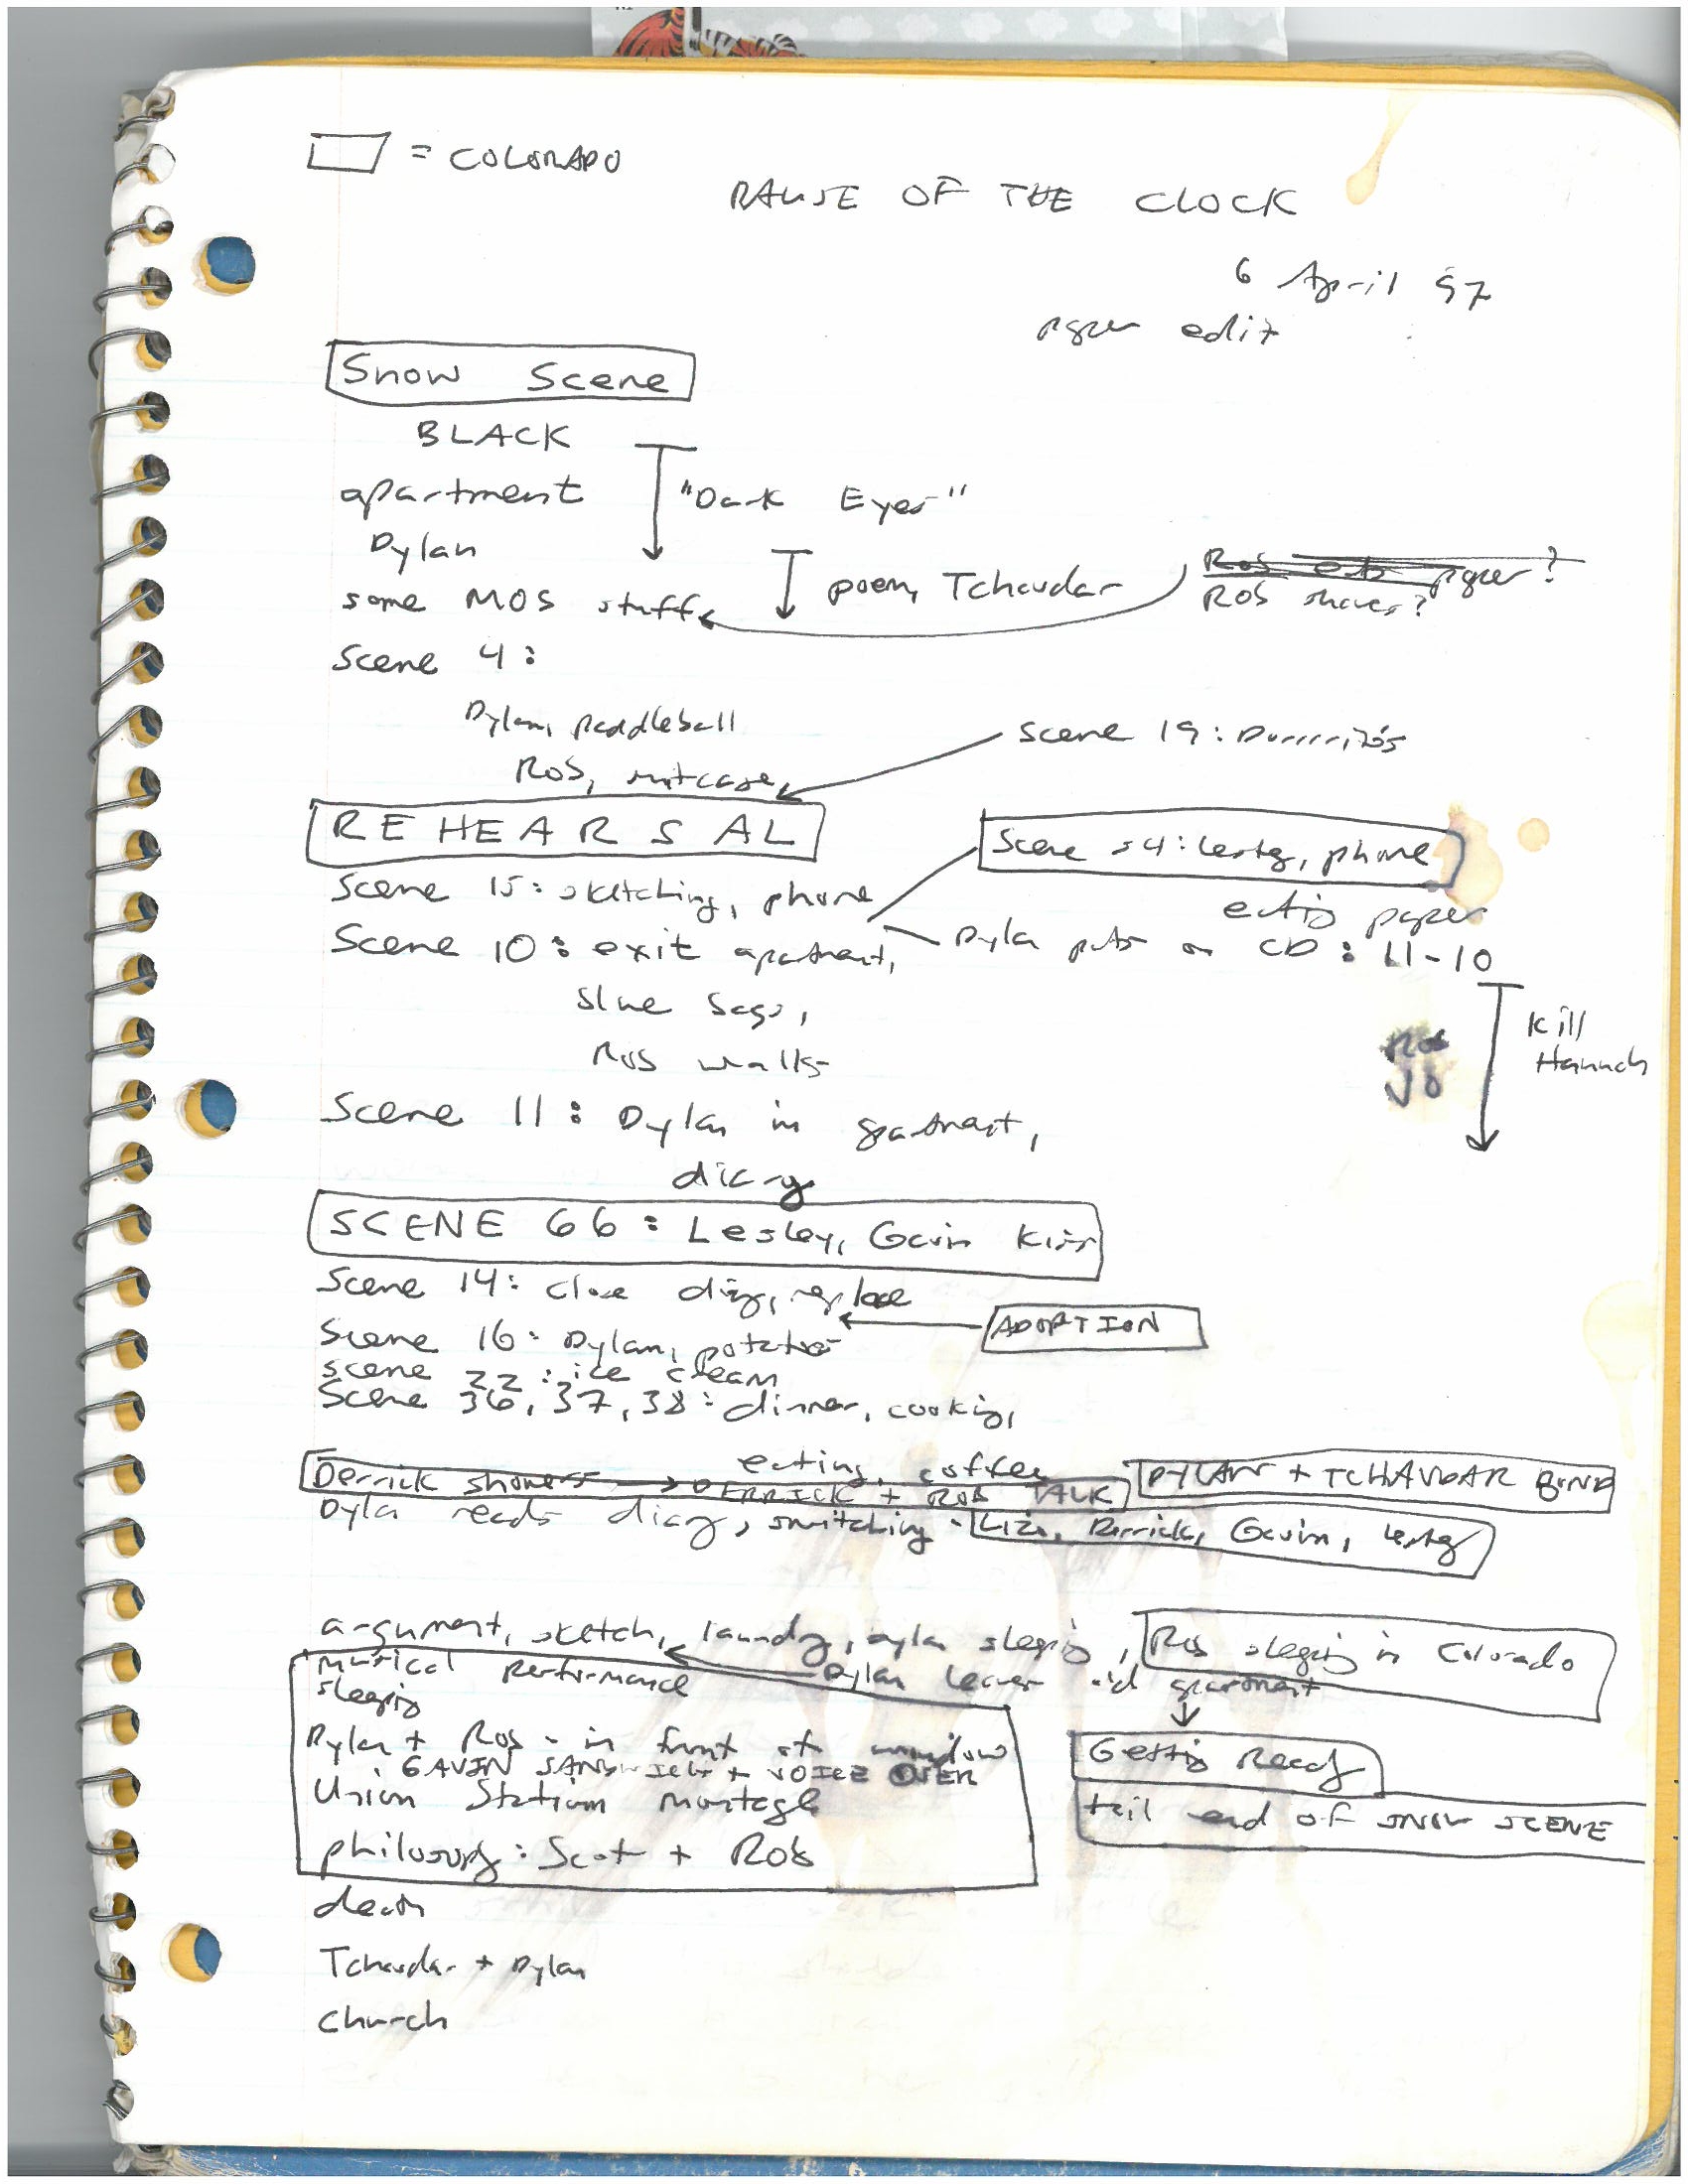 = COLORADO
PAUSE OF THE CLOCK
6 April 97
paper edit
Snow Scene
BLACK
apartment
"Dark Eyes"
Dylan
some MOS stuff
poem, Tchavdar
Rob eats paper?
Rob shaves?
Scene 4:
Dylan, paddleball
Rob, suitcase,
Scene 19: Durrrritos
REHEARSAL
Scene 54: Lesley, phone
Scene 15: sketching, phone
eating paper
Scene 10: exit apartment,
Dylan puts on CD: 11-10
slue sags,
Rob walks
Kill Hannah
Rob
VO
Scene 11: Dylan in apartment,
diary
SCENE 66: Lesley, Gavin kiss
Scene 14: close diary, replace
ADOPTION
Scene 16: Dylan, potatoes
Scene 22: ice cream
Scene 36, 37, 38: dinner, cooking,
eating, coffee
Derrick showers
DERRICK + ROB TALK
DYLAN + TCHAVDAR BOND
Dylan reads diary, switching -
Liza, Derrick, Gavin, Lesley
argument, sketch, laundry, Dylan sleeping,
Rob sleeping in Colorado
musical performance
Dylan leaves old apartment
sleeping
Dylan + Rob - in front of window
Getting Ready
GAVIN SANDWICH + VOICE OVER
Union Station montage
tail end of SNOW SCENE
philosophy: Scot + Rob
death
Tchavdar + Dylan
church